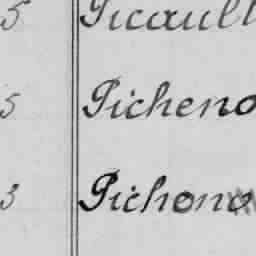 5 Picault
5 Picheno
3 Pichono